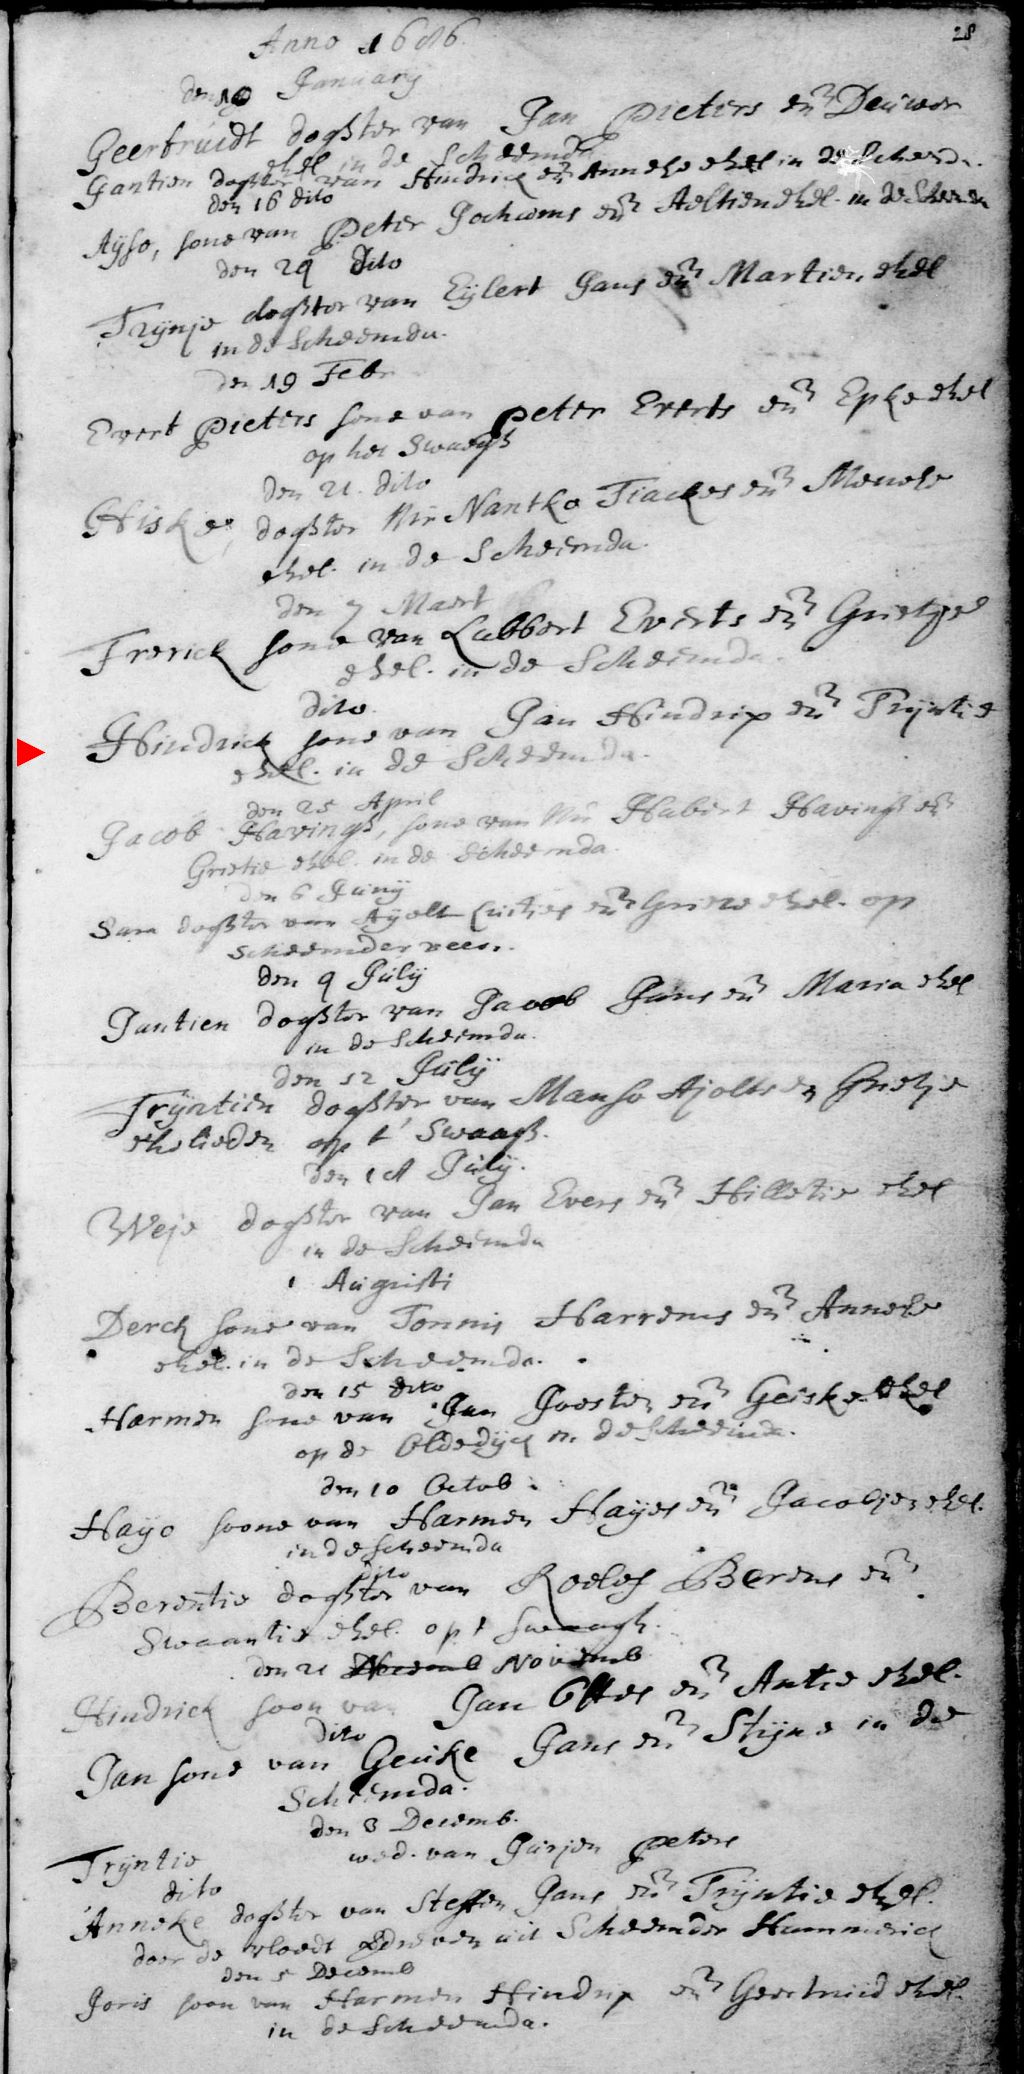 28
Anno 1686.
den 10 January
Geertruidt dogter van Jan Pieters en Deuwer
ehel in de Scheemda
Gantien dogter van Hindrick en Anneke ehel in de Scheemda.
den 16 dito
Ayso, sone van Peter Jochums en Aeltien ehel. in de Scheemda
den 29 dito
Trijnje dogter van Eylert Jans en Martien ehel
in de Scheemda.
den 19 Febr
Evert Pieters sone van Peter Everts en Epke ehel
op het Swaegh
den 21. dito
Hiske, dogter Mr Nantko Tiackes en Meneke
ehel. in de Scheemda.
den 7 Maert
Frerick sone van Lubbert Everts en Grietje
ehel. in de Scheemda.
dito.
Hindrick sone van Jan Hindrix en Trijntie
ehel. in de Scheemda.
den 25 April
Jacob Havingh, sone van Mr Habert Havingh en
Grietie ehel. in de Scheemda.
den 6 Junij
Sara dogter van Ayolt en ehel. op
Scheemder veen.
den 9 Julij
Jantien dogter van Jacob Jans en Maria ehel
in de Scheemda.
den 12 Julij
Trijntien dogter van Manso Ajolts en Grietje
ehelieden op t' Swaagh.
den Julij.
Weje dogter van Jan Evers en Hilletie ehel
in de Scheemda
1 Augusti
Derck sone van Tonnis Harrems en Anneke
ehel. in de Scheemda.
den 15 dito
Harmen sone van Jan Joosten en Geiske ehel
op de Oldedijck in de Scheemda.
den 10 Octob.
Hayo soone van Harmen Hayes en Jacobjen ehel.
in de Scheemda
dito
Berentie dogter van Roelof Berens en
Swaantie ehel. op t Swaagh.
den 21 Decemb Novemb
Hindrick soon van Jan Ottes en Antie ehel.
dito
Jan sone van Geuke Jans en Stijne in de
Scheemda.
den 3 Decemb.
Trijntie wed. van Jurjen Peters
dito
Anneke dogter van Steffen Jans en Trijntie ehel.
door de vloedt gedreven uit Scheemder Hammerick
den 5 Decemb
Joris soon van Harmen Hindrix en Geertruid ehel.
in de Scheemda.